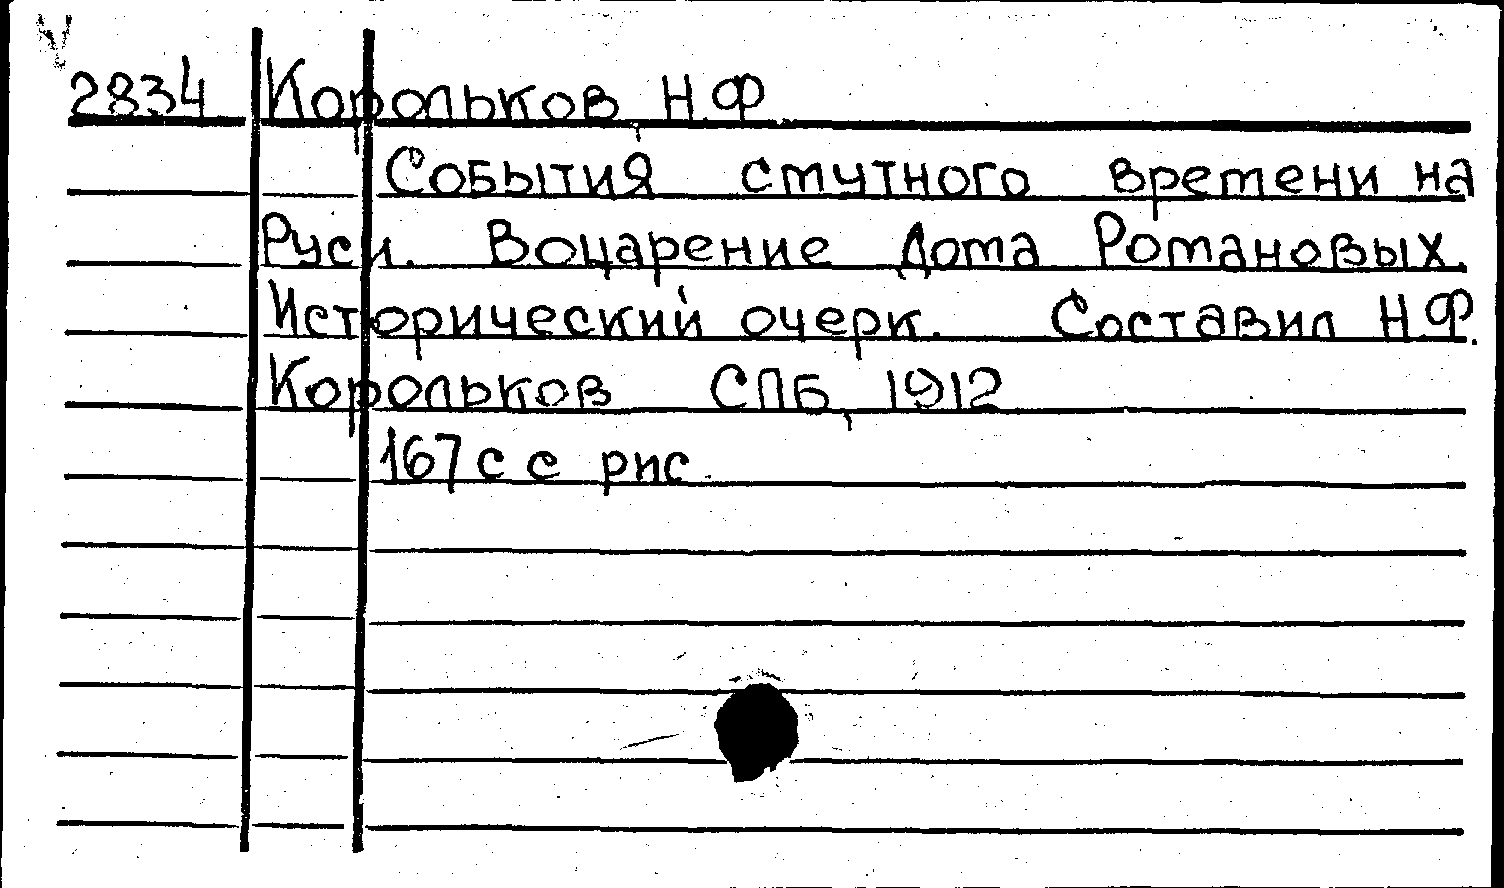 2834 Корольков, Н.Ф.
События смутного времени на
Руси. Воцарение Дома Романовых.
Исторический очерк. Составил Н.Ф.
Корольков СПБ, 1912
167 с с рис.